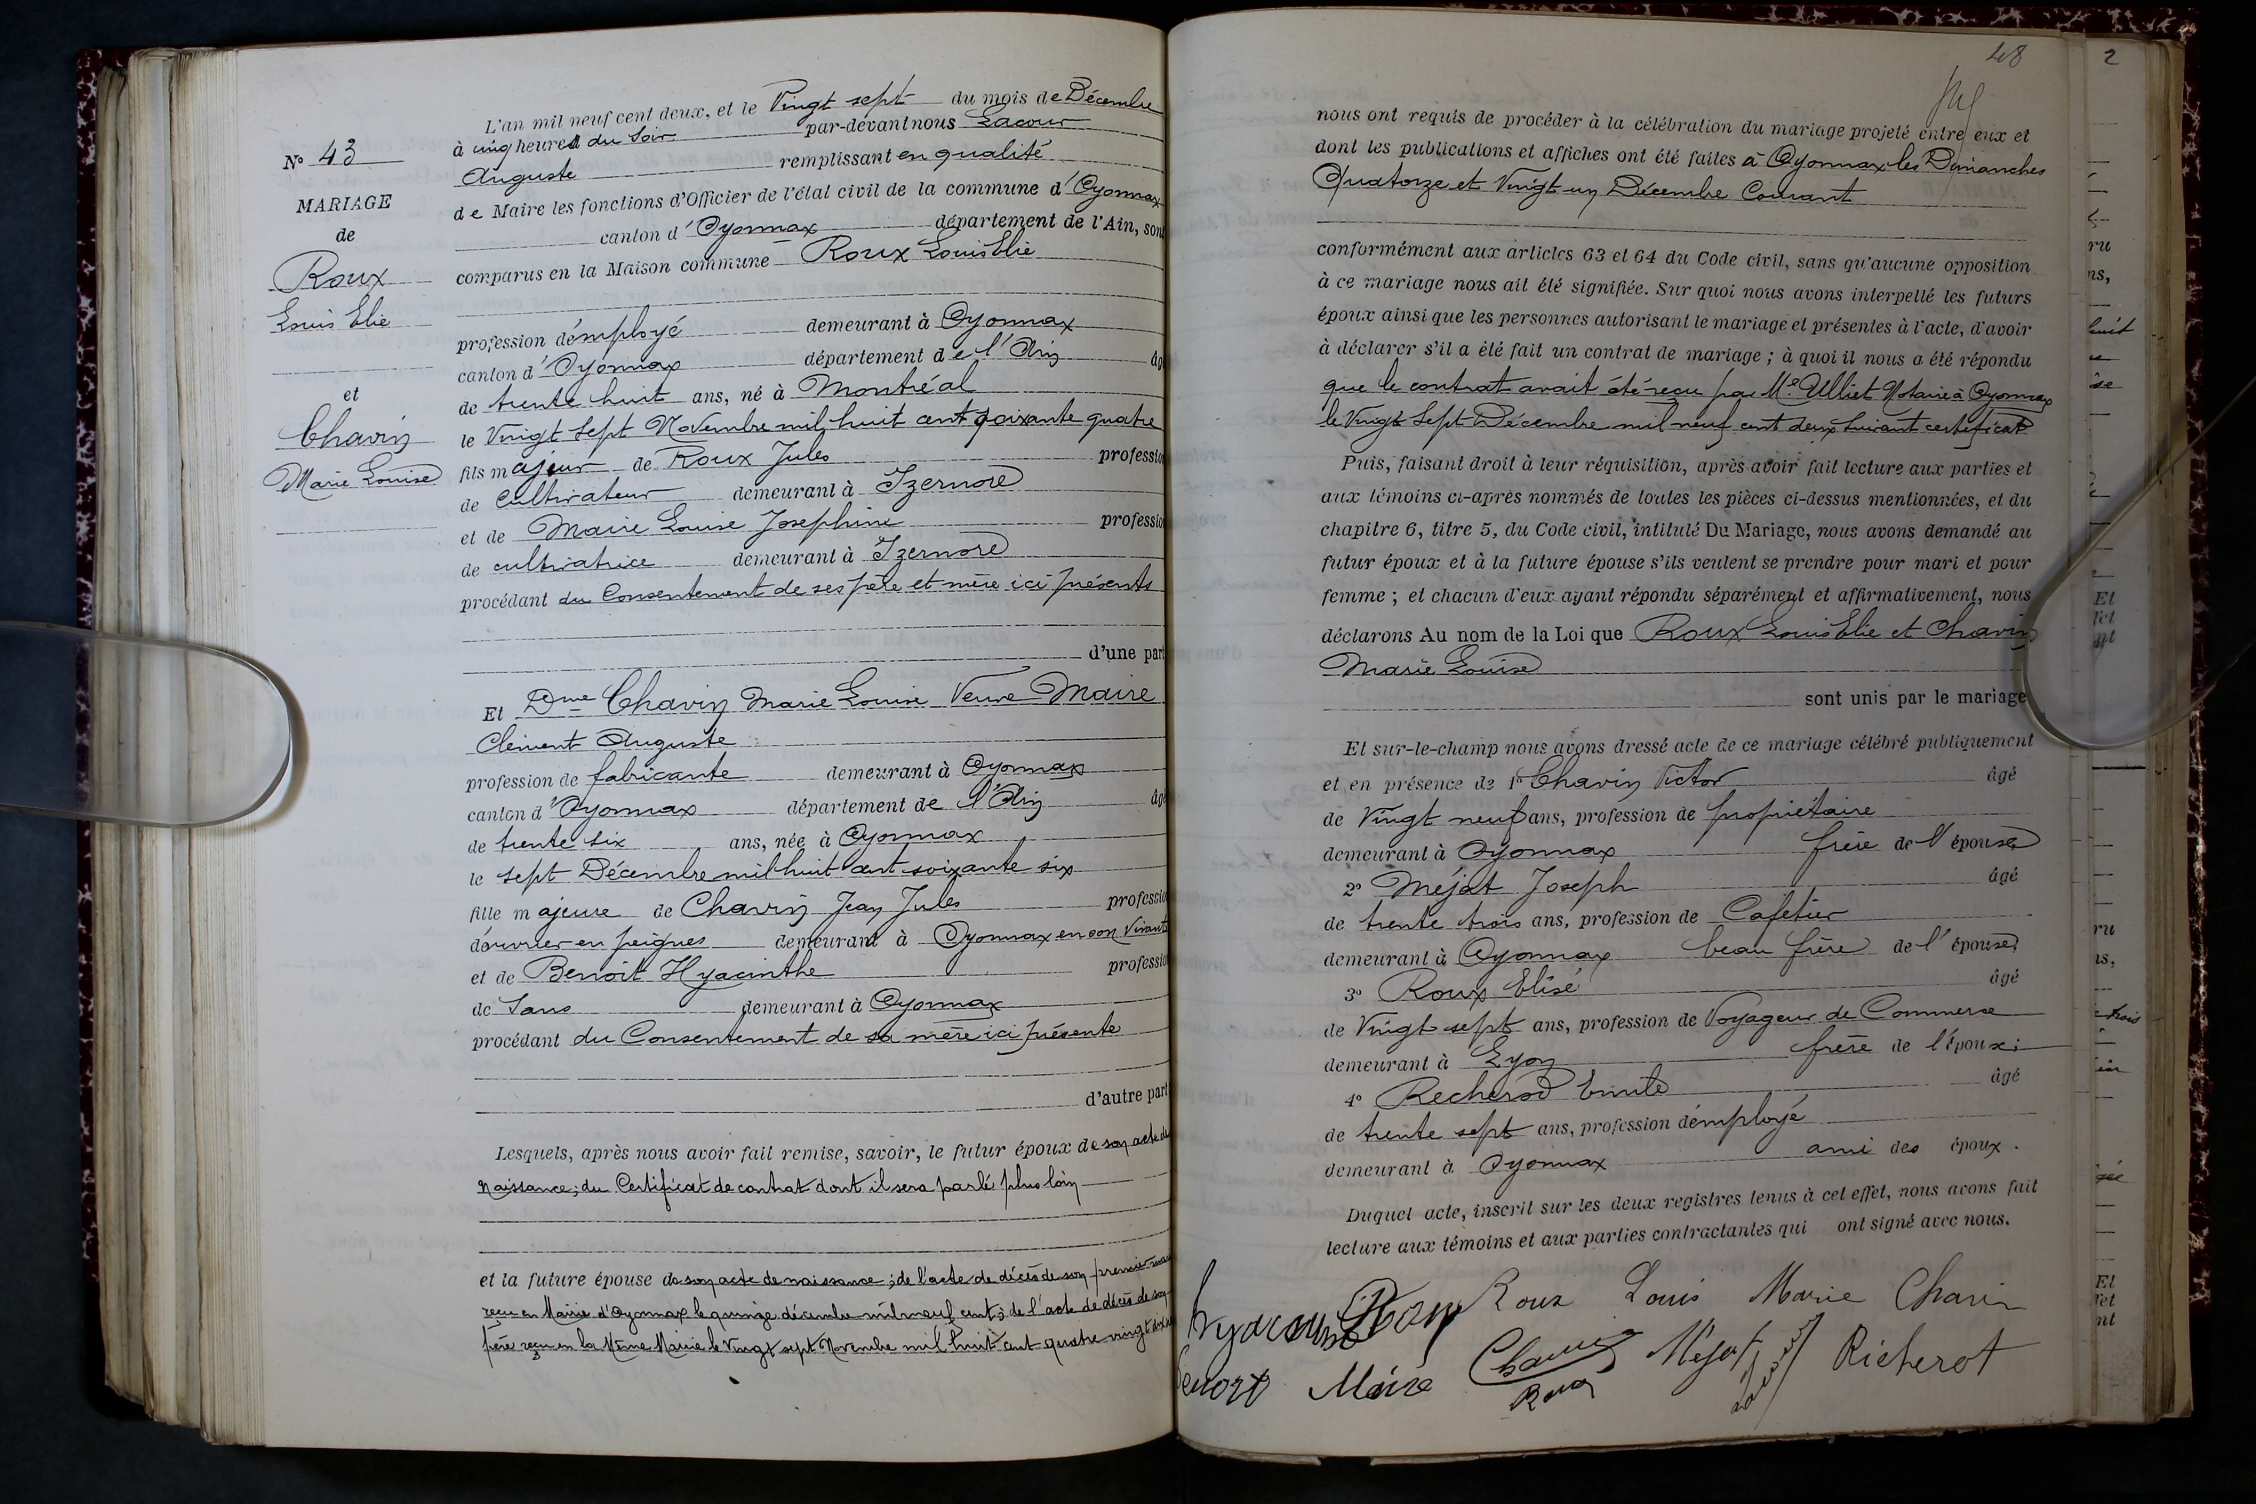 L'an mil neuf cent deux, et le Vingt sept du mois de Décembre
à cinq heures du soir par-devant nous Lacour
Auguste remplissant en qualité
de Maire les fonctions d'Officier de l'état civil de la commune d'Oyonnax
canton d'Oyonnax département de l'Ain, sont
comparus en la Maison commune Roux Louis Elie
profession d'employé demeurant à Oyonnax
canton d'Oyonnax département de l'Ain âgé
de trente huit ans, né à Montréal
le Vingt Sept Novembre mil huit cent soixante quatre
fils majeur de Roux Jules profession
de cultivateur demeurant à Izernore
et de Marie Louise Josephine profession
de cultivatrice demeurant à Izernore
procédant du Consentement de ses père et mère ici présents
d'une part
Et Dme Chavin Marie Louise Veuve Maire
Clément Auguste
profession de fabricante demeurant à Oyonnax
canton d'Oyonnax département de l'Ain âgé
de trente six ans, née à Oyonnax
le sept Décembre mil huit cent soixante six
fille majeure de Chavin Jean Jules profession
d'ouvrier en peignes demeurant à Oyonnax en son vivant
et de Benoit Hyacinthe profession
de Sans demeurant à Oyonnax
procédant du Consentement de sa mère ici présente
d'autre part
Lesquels, après nous avoir fait remise, savoir, le futur époux de son acte de
naissance; du Certificat de contrat dont il sera parlé plus loin
et la future épouse de son acte de naissance; de l'acte de décès de son premier mari
reçu en Mairie d'Oyonnax le quinze décembre mil neuf cent; de l'acte de décès de son
père reçu en la Même Mairie le Vingt sept Novembre mil huit cent quatre vingt
No 43
MARIAGE
de
Roux
Louis Elie
et
Chavin
Marie Louise
48
nous ont requis de procéder à la célébration du mariage projeté entre eux et
dont les publications et affiches ont été faites à Oyonnax les Dimanches
Quatorze et Vingt un Décembre Courant
conformément aux articles 63 et 64 du Code civil, sans qu'aucune opposition
à ce mariage nous ait été signifiée. Sur quoi nous avons interpellé les futurs
époux ainsi que les personnes autorisant le mariage et présentes à l'acte, d'avoir
à déclarer s'il a été fait un contrat de mariage ; à quoi il nous a été répondu
que le contrat avait été reçu par Me Ulliet Notaire à Oyonnax
le Vingt Sept Décembre mil neuf cent deux suivant certificat
Puis, faisant droit à leur réquisition, après avoir fait lecture aux parties et
aux témoins ci-après nommés de toutes les pièces ci-dessus mentionnées, et du
chapitre 6, titre 5, du Code civil, intitulé Du Mariage, nous avons demandé au
futur époux et à la future épouse s'ils veulent se prendre pour mari et pour
femme ; et chacun d'eux ayant répondu séparément et affirmativement, nous
déclarons Au nom de la Loi que Roux Louis Elie et Chavin
Marie Louise
sont unis par le mariage
Et sur-le-champ nous avons dressé acte de ce mariage célébré publiquement
et en présence de 1o Chavin Victor âgé
de Vingt neuf ans, profession de propriétaire
demeurant à Oyonnax frère de l'épouse
2o Méjat Joseph âgé
de trente trois ans, profession de Cafetier
demeurant à Oyonnax beau frère de l'épouse
3o Roux Elisé âgé
de Vingt sept ans, profession de Voyageur de Commerce
demeurant à Lyon frère de l'époux;
4o Recherod Emile âgé
de trente sept ans, profession d'employé
demeurant à Oyonnax ami des époux.
Duquel acte, inscrit sur les deux registres tenus à cet effet, nous avons fait
lecture aux témoins et aux parties contractantes qui ont signé avec nous.
Roux Louis Marie Chavin
Maire Chavin Méjat Richerot
Roux
2